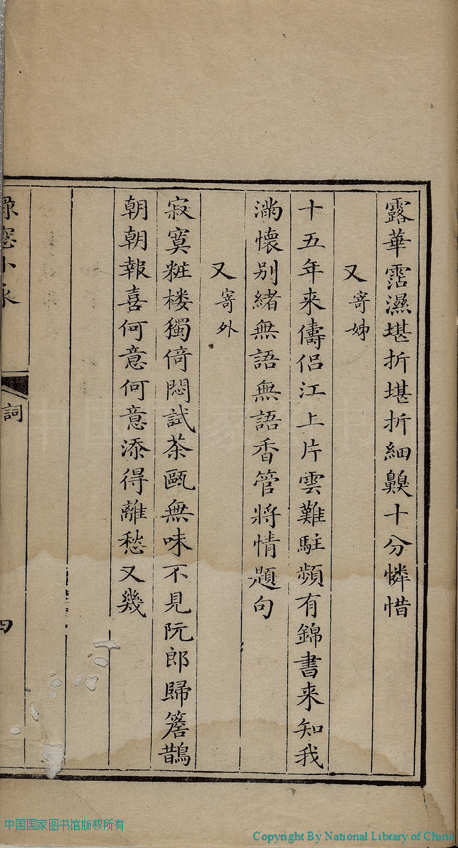 露華霑濕堪折堪折細齅十分憐惜
又寄姊
十五年来儔侶江上片雲難駐頻有錦書来知我
滿懷别緒無語無語香管將情題句
又寄外
寂寞粧楼獨倚悶試茶甌無味不見阮郎歸簷鵲
朝朝報喜何意何意添得離愁又幾
詞
四
中国国家图书馆版权所有
Copyright By National Library of China